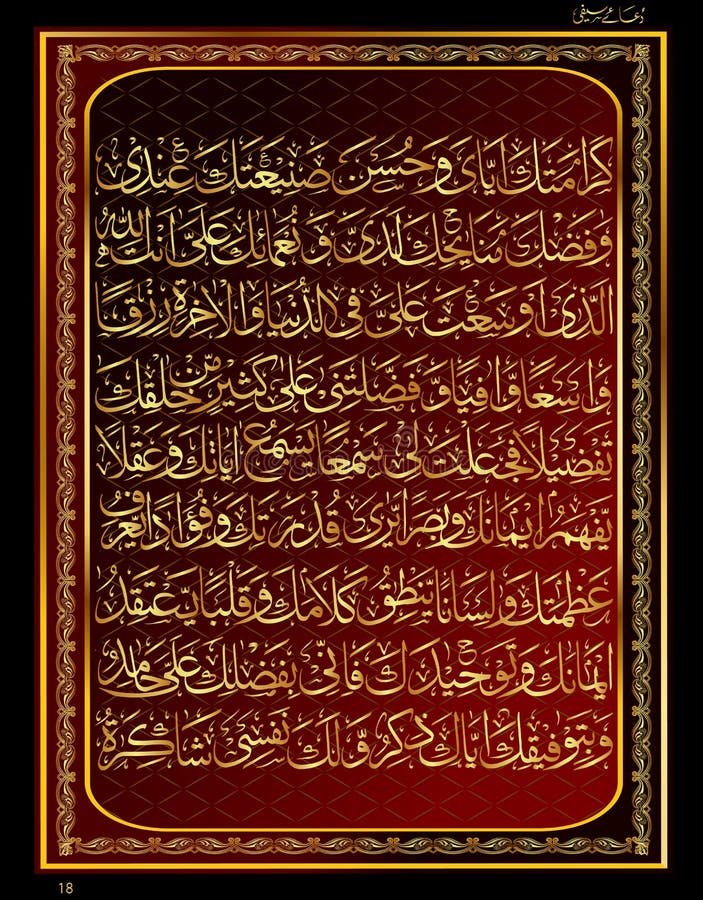 دعائے سیفی
كرامتك اياى وحسن صنيعتك عندى
وفضلك منايحك لدى ونعمائك على انت الله
الذى اوسعت على فى الدنيا والاخرة رزقا
واسعا وافيا وفضلتنى على كثير من خلقك
تفضيلا فجعلت لى سمعا يسمع اياتك وعقلا
يفهم ايمانك وبصرا يرى قدرتك وفؤادا يعرف
عظمتك ولسانا ينطق كلامك وقلبا يعتقد
ايمانك وتوحيدك فانى بفضلك على حامد
وبتوفيقك اياك ذكر ولك نفسى شاكرة
18